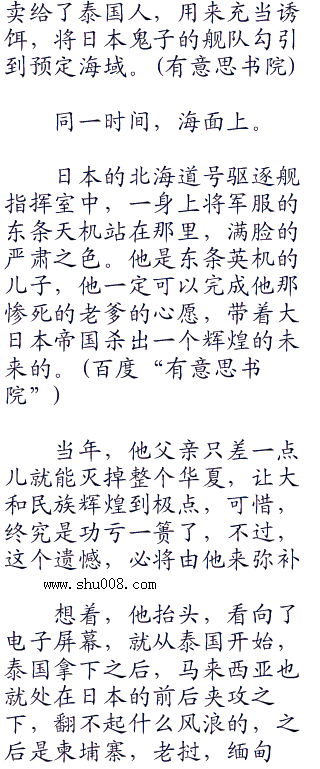 卖给了泰国人，用来充当诱
饵，将日本鬼子的舰队勾引
到预定海域。(有意思书院)
同一时间，海面上。
日本的北海道号驱逐舰
指挥室中，一身上将军服的
东条天机站在那里，满脸的
严肃之色。他是东条英机的
儿子，他一定可以完成他那
惨死的老爹的心愿，带着大
日本帝国杀出一个辉煌的未
来的。(百度“有意思书
院”)
当年，他父亲只差一点
儿就能灭掉整个华夏，让大
和民族辉煌到极点，可惜，
终究是功亏一篑了，不过，
这个遗憾，必将由他来弥补
www.shu008.com
想着，他抬头，看向了
电子屏幕，就从泰国开始，
泰国拿下之后，马来西亚也
就处在日本的前后夹攻之
下，翻不起什么风浪的，之
后是柬埔寨，老挝，缅甸